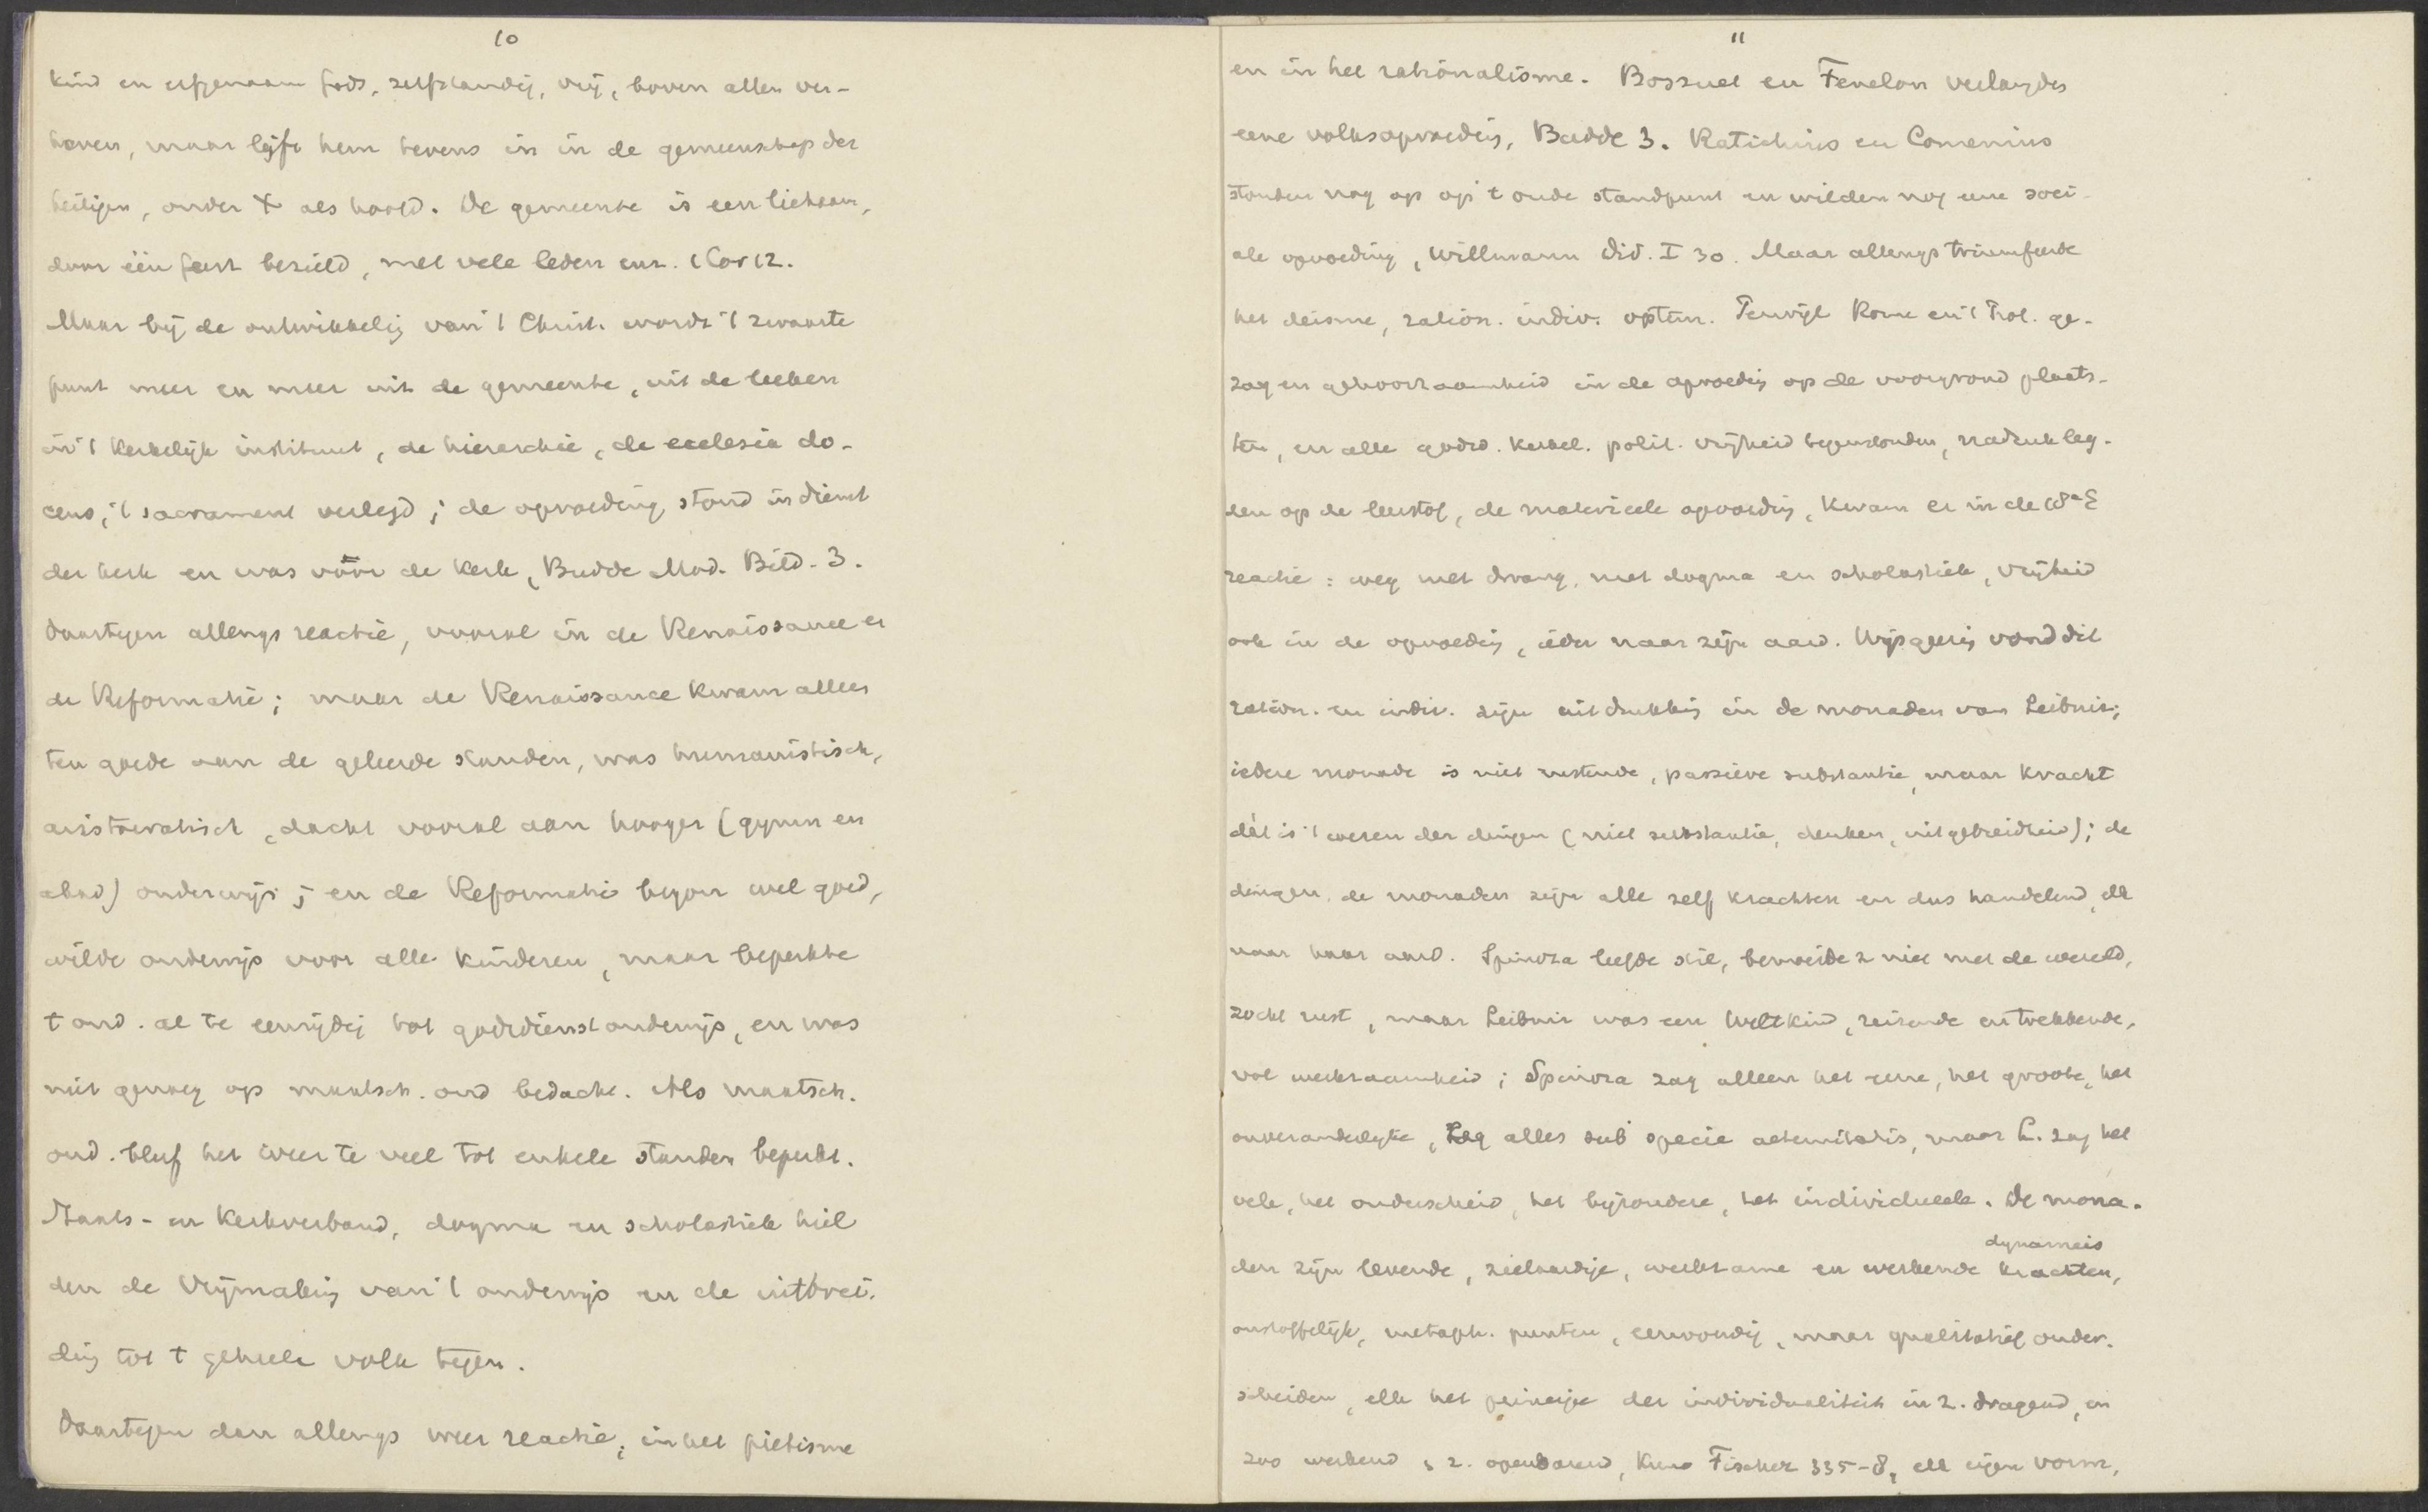 10
kind en erfgenaam Gods, zelfstandig, vrij, boven allen ver-
heven, maar lijft hem tevens in in de gemeenschap der
heiligen, onder X als hoofd. De gemeente is een lichaam,
door één geest bezield, met vele leden enz. 1 Cor 12.
Maar bij de ontwikkelig van 't Christ. wordt 't zwaarte
punt meer en meer uit de gemeente, uit de leeken
in 't kerkelijk instituut, de hierarchie, de ecclesia do-
cens, 't sacrament verlegd; de opvoeding stond in dienst
der kerk en was vóór de kerk, Budde Mod. Bild. 3.
Daartegen allengs reactie, vooral in de Renaissance en
de Reformatie; maar de Renaissance kwam alleen
ten goede aan de geleerde standen, was humanistisch,
aristocratisch, dacht vooral aan hooger (gymn en
akad) onderwijs; en de Reformatie begon wel goed,
wilde onderwijs voor alle kinderen, maar beperkte
t ond. al te eenzijdig tot godsdienstonderwijs, en was
niet genoeg op maatsch. ond bedacht. Als maatsch.
ond. bleef het weer te veel tot enkele standen beperkt.
Staats- en kerkverband, dogma en scholastiek hiel
den de vrijmakig van 't onderwijs en de uitbrei-
dig tot t geheele volk tegen.
Daartegen dan allengs weer reactie, in het pietisme
11
en in het rationalisme. Bossuet en Fenelon verlangden
eene volksopvoedig, Budde 3. Ratichius en Comenius
stonden nog op op 't oude standpunt en wilden nog eene soci-
ale opvoeding, Willmann Did. I 30. Maar allengs triumfeerde
het deisme, ration. indiv. optim. Terwijl Rome en 't Prot. ge-
zag en gehoorzaamheid in de opvoedig op de voorgrond plaats-
ten, en alle godsd. kerkel. polit. vrijheid tegenstonden, nadruk leg-
den op de leerstof, de materieele opvoedig, kwam er in de 18e E
reactie: weg met dwang, met dogma en scholastiek, vrijheid
ook in de opvoedig, ieder naar zijn aard. Wijsgeerig vond dit
ration. en indiv. zijn uitdrukkig in de monaden van Leibniz;
iedere monade is niet rustende, passieve substantie, maar kracht
dàt is 't wezen der dingen (niet substantie, denken, uitgebreidheid); de
dingen, de monaden zijn alle zelf krachten en dus handelend, elk
naar haar aard. Spinoza leefde stil, bemoeide z niet met de wereld,
zocht rust, maar Leibniz was een Weltkind, reizende en trekkende,
vol werkzaamheid; Spinoza zag alleen het eene, het groote, het
onveranderlijke, zag alles sub specie aeternitatis, maar L. zag het
vele, het onderscheid, het bijzondere, het individueele. De mona-
den zijn levende, zielaardige, werkzame en werkende krachten,
dynameis
onstoffelijk, metaph. punten, eenvoudig, maar qualitatief onder-
scheiden, elk het principe der individualiteit in z. dragend, en
zoo werkend, z. openbarend, Kuno Fischer 335-8, elk eigen vorm,